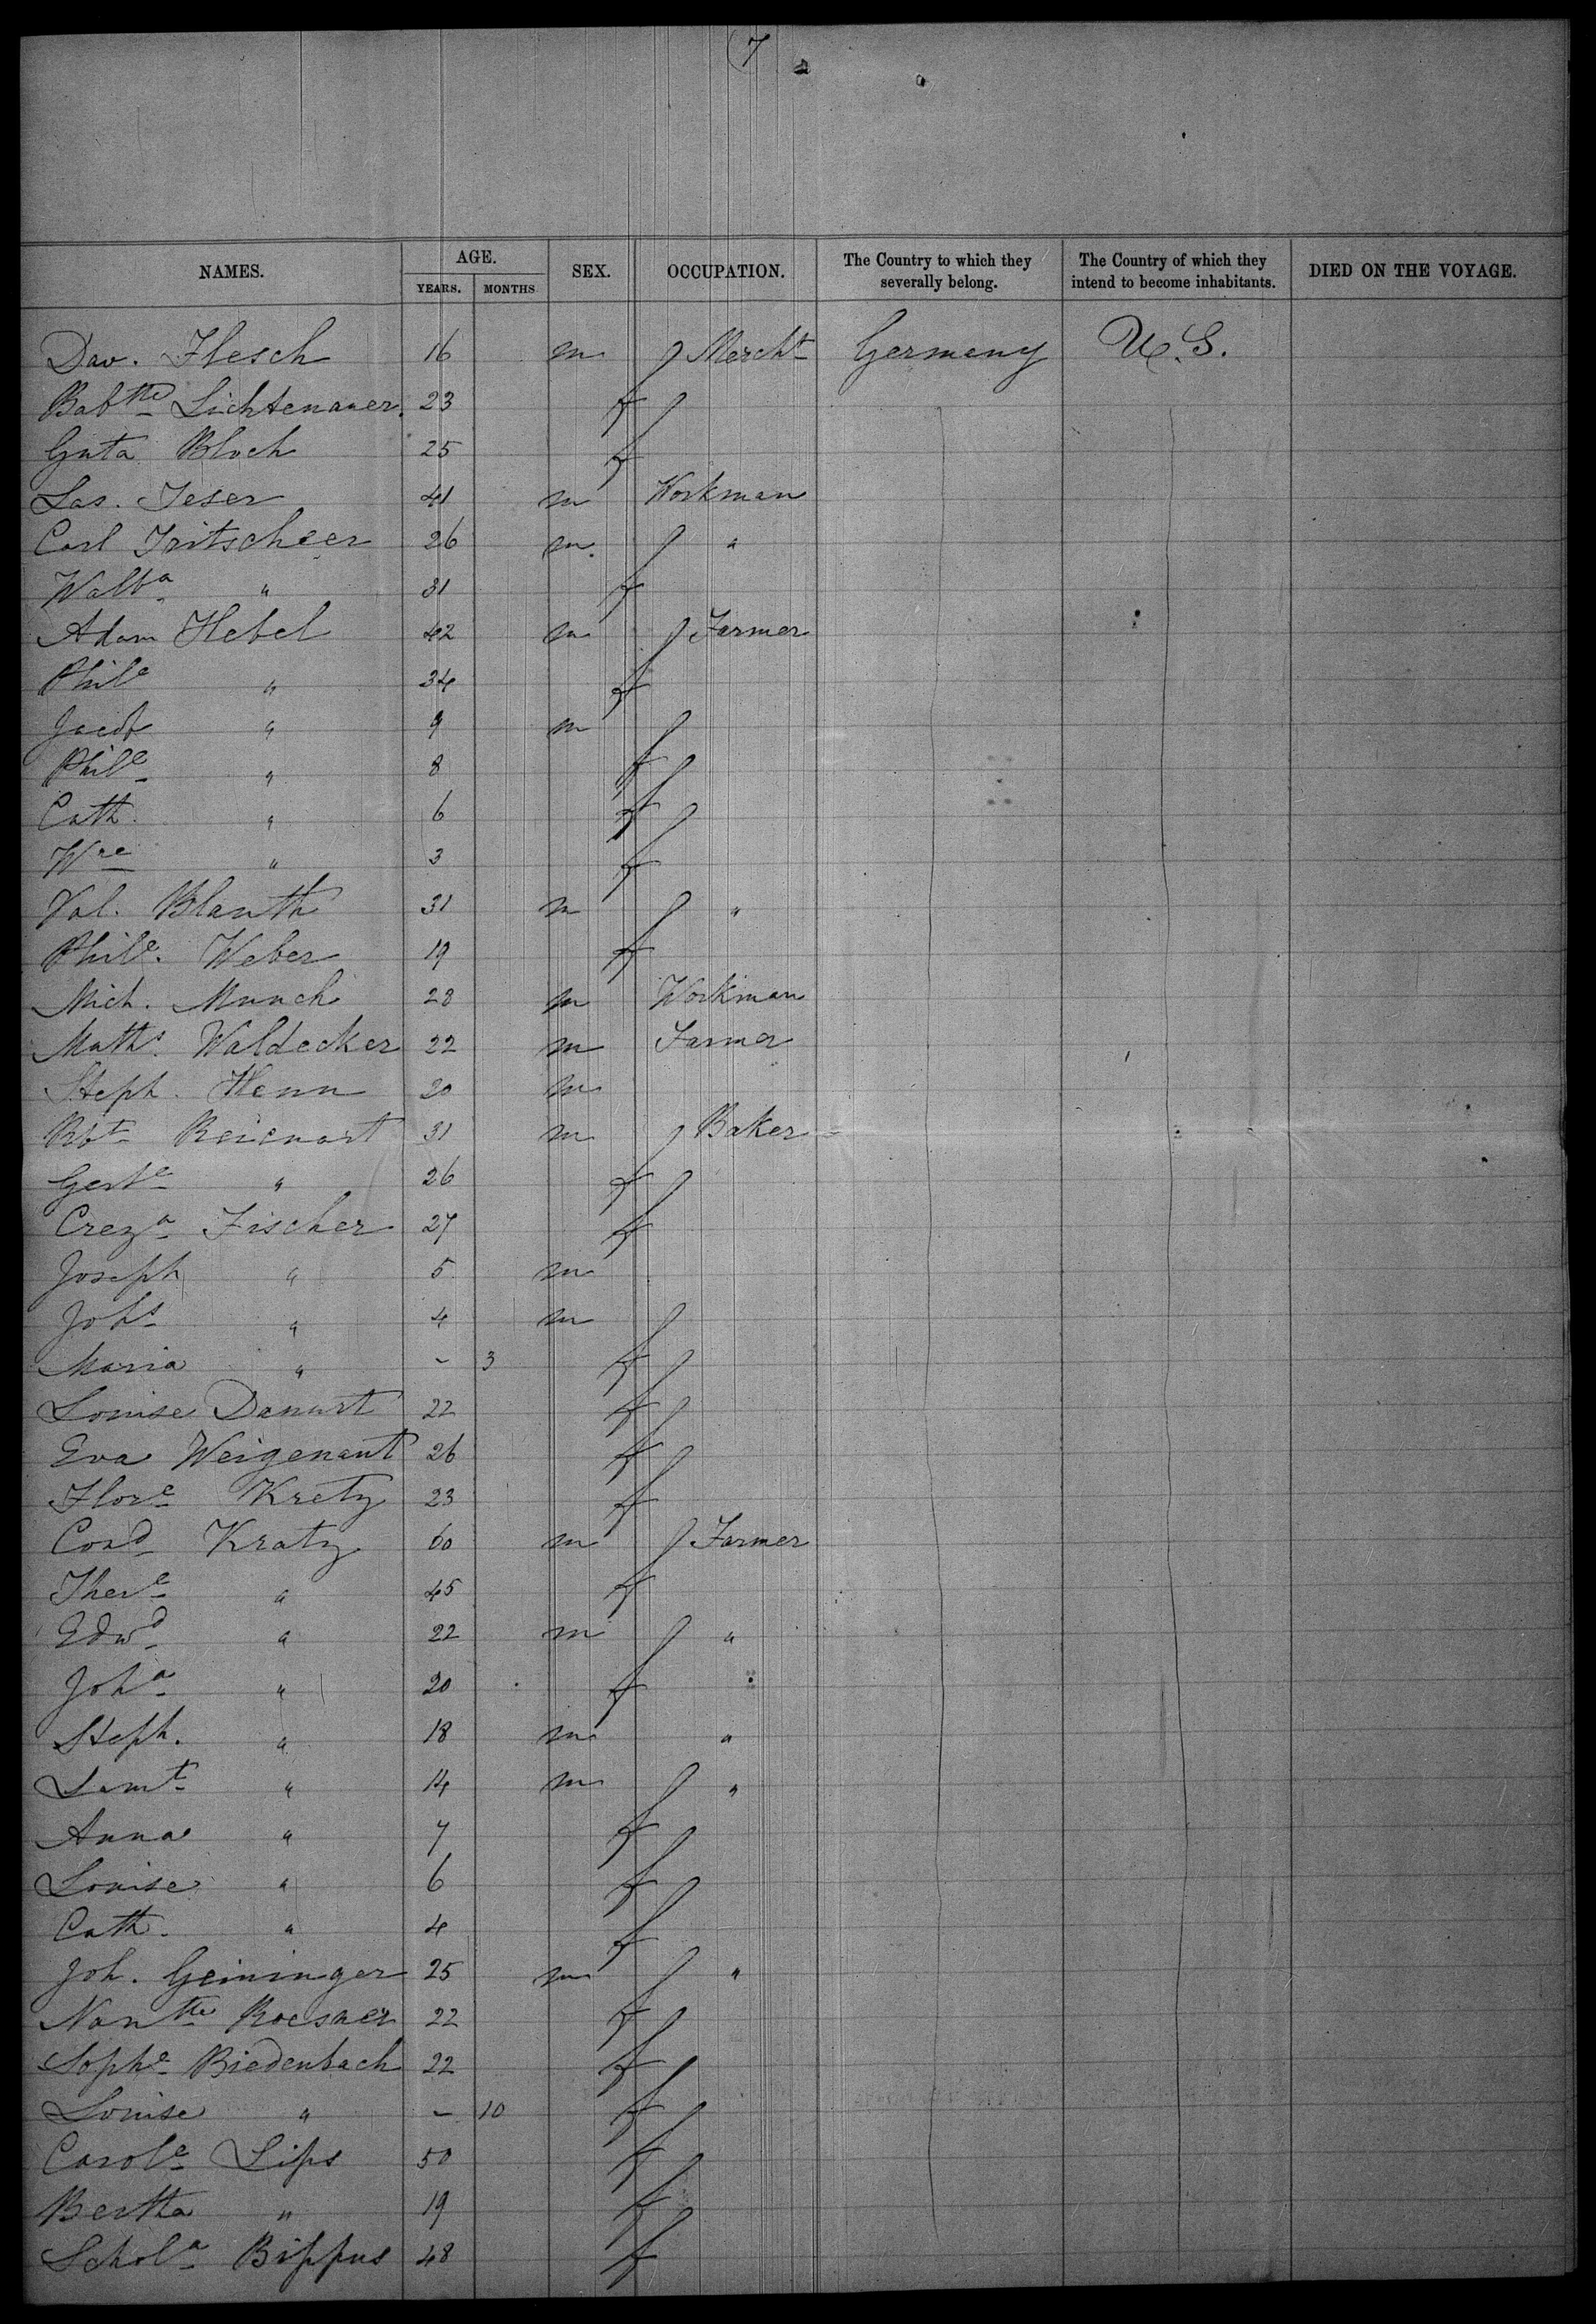 (7
NAMES. AGE. YEARS. MONTHS SEX. OCCUPATION. The Country to which they severally belong. The Country of which they intend to become inhabitants. DIED ON THE VOYAGE.
Dav. Flesch 16 m Mercht Germany U.S.
Babtte Lichtenauer. 23 f
Guta Bloch 25 f
Las. Feser 41 m Workman
Carl Fritscheer 26 m. "
Walba " 31 f
Adam Hebel 42 m Farmer
Phile " 34 f
Jacob " 9 m
Phile " 8 f
Cath. " 6 f
Wne " 3 f
Val. Blanth 31 m "
Phile. Weber 19 f
Mich. Munch 28 m Workman
Maths. Waldecker 22 m Farmer
Steph. Henn 20 m
Rbt Reienart 31 m Baker
Gerte " 26 f
Creza Fischer 27 f
Joseph " 5 m
Johs " 4 m
Maria " - 3 f
Louise Danurt 22 f
Eva Weigenant 26 f
Flore Kretz 23 f
Cond Kratz 60 m Farmer
There " 45 f
Edwd " 22 m "
Joha " 20 f
Steph. " 18 m "
Lamt " 14 m "
Anna " 7 f
Louise " 6 f
Cath. " 4 f
Joh. Geininger 25 m "
Nantte Roesner 22 f
Sophe Biedenbach 22 f
Louise " - 10 f
Carole Lips 50 f
Bertha " 19 f
Schola Bippus 48 f